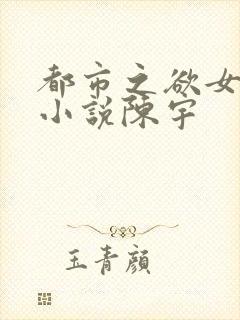 都市之欲女
小說陳宇
玉青顏